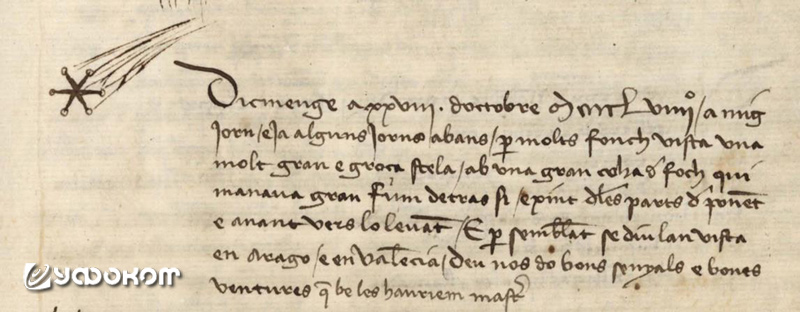 Dicmenge a xxviii. doctobre Mcccclviiiiº / a mig
jorn / e ja alguns jorns abans / per molts fonch vista una
molt gran e groça stela / ab una gran coha d foch qui
manava gran fum detras si / exint dles parts d ponent
e anant vers lo levat / E per semblat se diu lan vista
en Arago / e en Valencia / deu nos do bons senyals e bones
ventures q be les hauriem mast
ухоокот